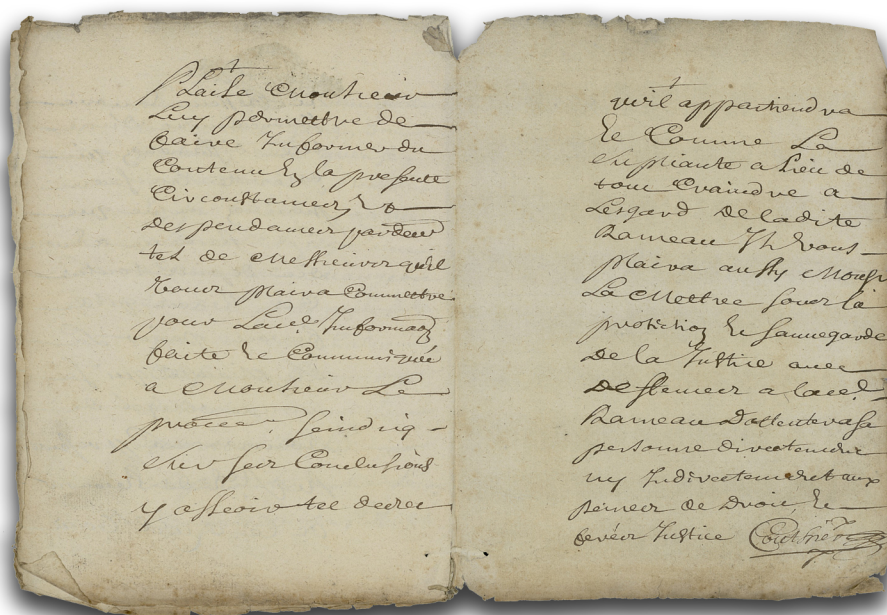 Plaise Monsieur
Luy permettre de
faire Informer du
Contenu En la presente
Circonstances Et
despendances pardevt
tel de Messieurs quil
vous plaira Commettre
pour Lad. Information
faite Et Communiquée
a Monsieur Le
procur. scindiq
sur ses Conclusions
y asseoir tel decret
quil appartiendra
Et Comme La
supliante a Lieu de
tout Craindre a
Lesgard de ladite
Rameau Il vous
plaira aussy Monsr
La Mettre sous la
protection Et sauvegarde
de la Justice avec
deffences a lad.
Rameau Dattenter a sa
personne directement
ny Indirectement aux
peines de Droit, Et
ferés Justice